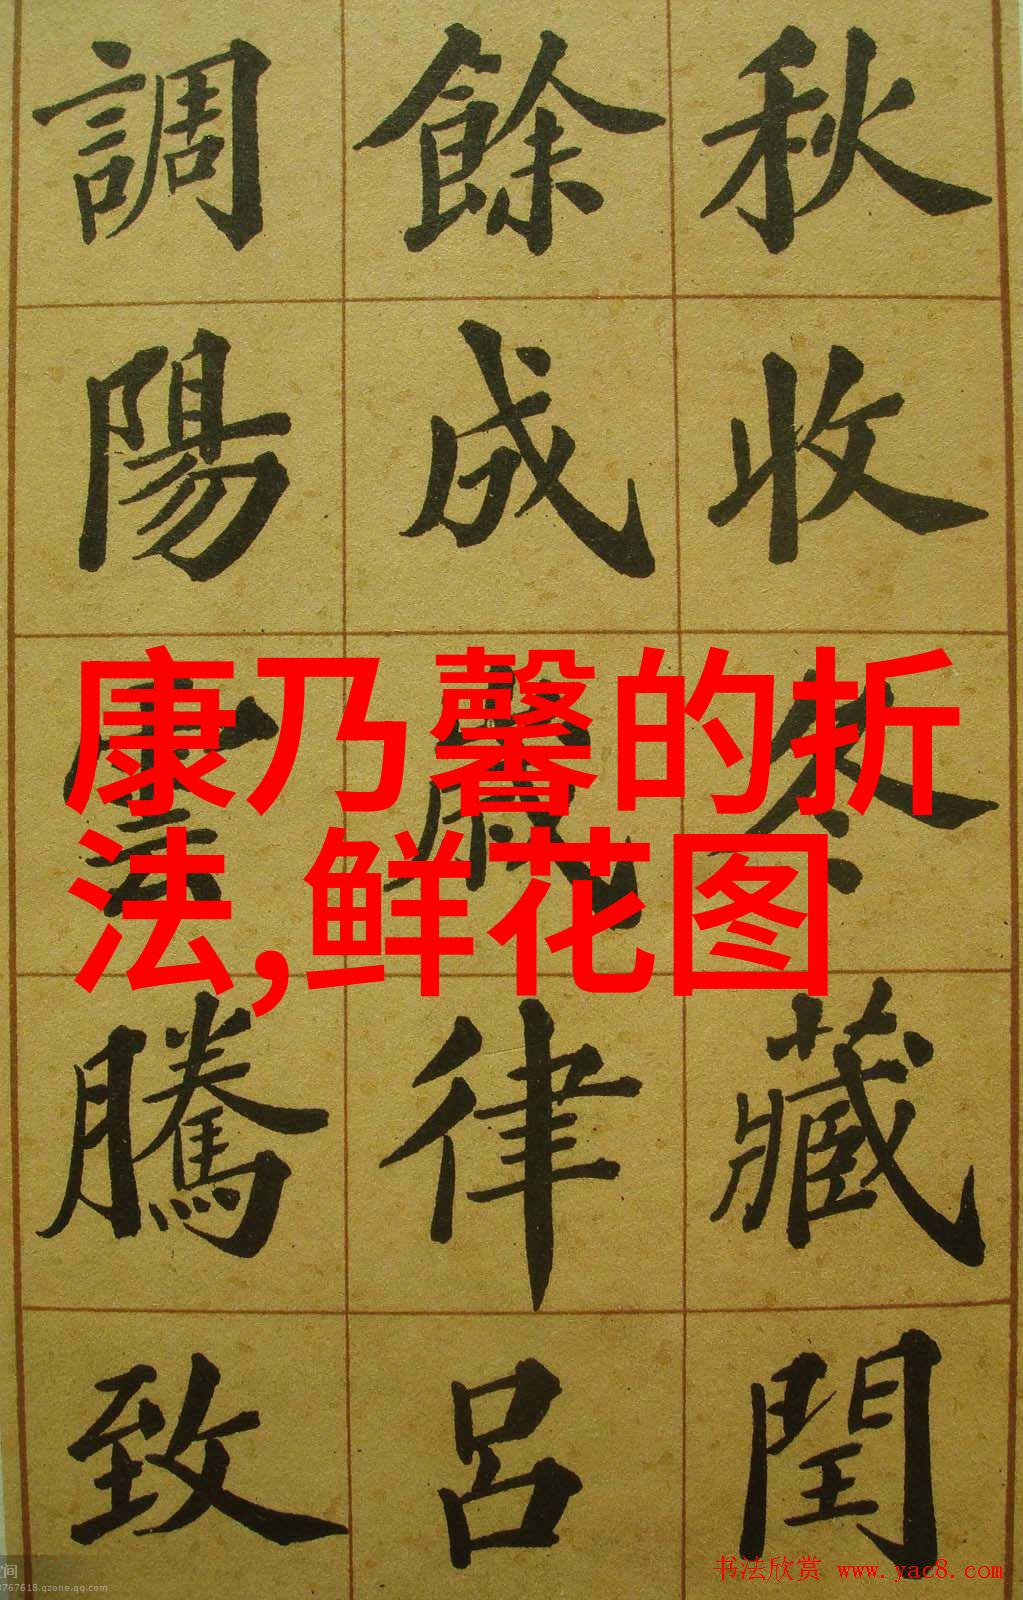 秋收冬藏閏
餘成歲律呂
調陽雲騰致
康乃馨的折
法,鲜花图
书法欣赏 www.yac8.com
767618.qzone.qq.com